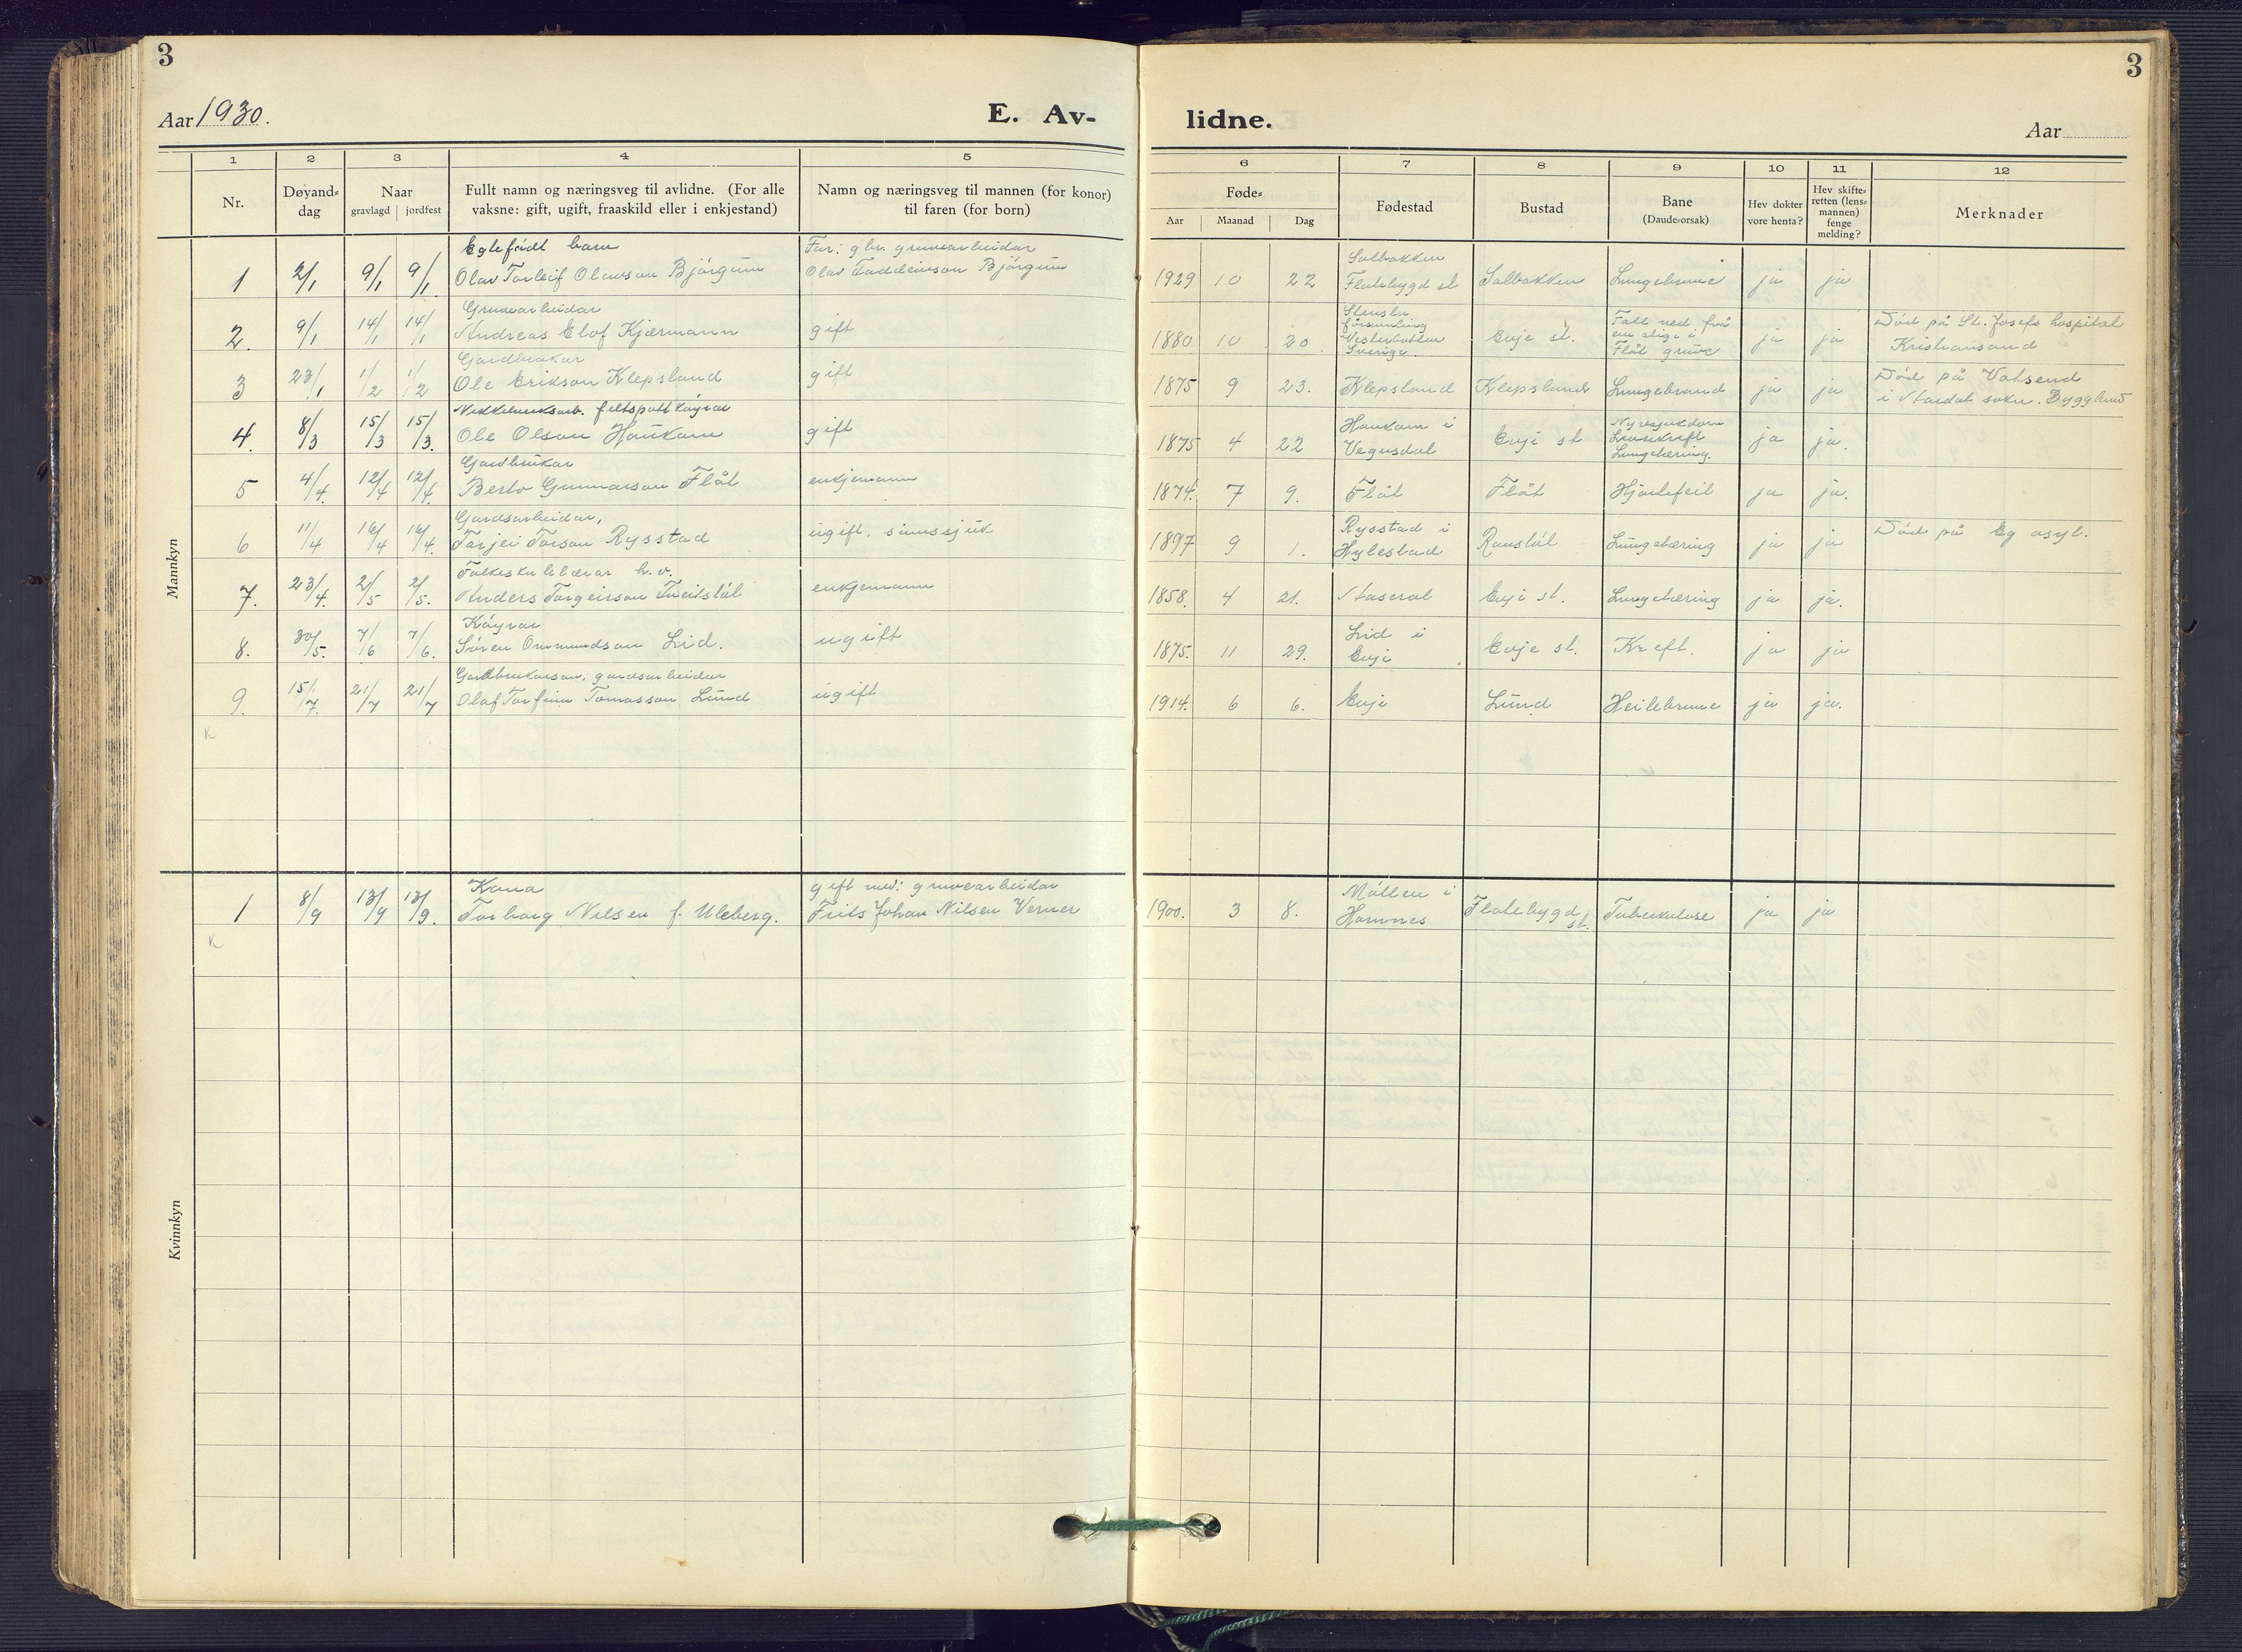 3
3
Aar 1930.
E. Av-
lidne.
Aar
1 2 3 4 5 6 7 8 9 10 11 12
Nr.
Døyand-
dag
Naar
gravlagd jordfest
Fullt namn og næringsveg til avlidne. (For alle
vaksne: gift, ugift, fraaskild eller i enkjestand)
Namn og næringsveg til mannen (for konor)
til faren (for born)
Føde-
Aar Maanad Dag
Fødestad
Bustad
Bane
(Daude-orsak)
Hev dokter
vore henta?
Hev skifte-
retten (lens-
mannen)
fenge
melding?
Merknader
Mannkyn
Eglefödt barn Far: gbr. gruvearbeidar Solbakken
1 2/1 9/1 9/1 Olav Torleif Olavson Bjørgum Olav Taddeivson Bjørgum 1929 10 22 Flatebygd st Solbakken Lungebrune ja ja
Gruvearbeidar
2. 9/1 14/1 14/1 Andreas Elof Kjærmann gift 1880 10 20
Stensele
församling
Vesterbotten
Sverige.
Evje st.
Fall ned frå
ein stige i
Flåt gruve
ja ja
Död på St. Josefs hospital
Kristiansand
Gardbrukar
3 23/1 1/2 1/2 Ole Erikson Klepsland gift 1875 9 23. Klepsland Klepsland Lungebrand ja ja
Död på Vatsend
i Årdal sokn. Byggland
Nikkelverksarb. feltspattkøyrar
4. 8/3 15/3 15/3. Ole Olson Haukom gift 1875 4 22
Haukom i
Vegusdal
Evje st
Nyresjukdom
Leverkreft
Lungetæring.
ja ja.
Gardbrukar
5 4/4. 12/4 12/4. Berto Gunnarson Flåt enkjemann 1874. 7 9. Flåt Flåt Hjartefeil ja ja.
Gardsarbeidar,
6 11/4 16/4 16/4. Tarjei Torson Rysstad ugift. sinnssjuk 1897 9 1.
Rysstad i
Hylestad
Lungetæring ja ja Död på Eg asyl.
Folkeskulelærar
7. 23/4. 2/5 2/5. Anders Torgeirson Tveitstøl enkjemann 1858. 4 21. Åseral Evje st. Lungetæring ja ja.
Køyrar
8. 30/5. 7/6 7/6. Søren Ommundson Lid. ugift 1875. 11 29.
Lid i
Evje
Evje st. Kreft. ja ja
Gardbrukarson, gardsarbeidar
9. 15/7. 21/7 21/7 Olaf Torfinn Tomasson Lund ugift 1914. 6 6. Evje Lund Heilebrune ja ja.
K
Kvinnkyn
Kona gift med: gruvearbeidar
1 8/9 13/9 13/9. Torborg Nilsen f. Uleberg. Frits Johan Nilsen Verner 1900. 3 8.
Möllen i
Hornnes
Flatebygd
st.
Tuberkulose ja ja
K